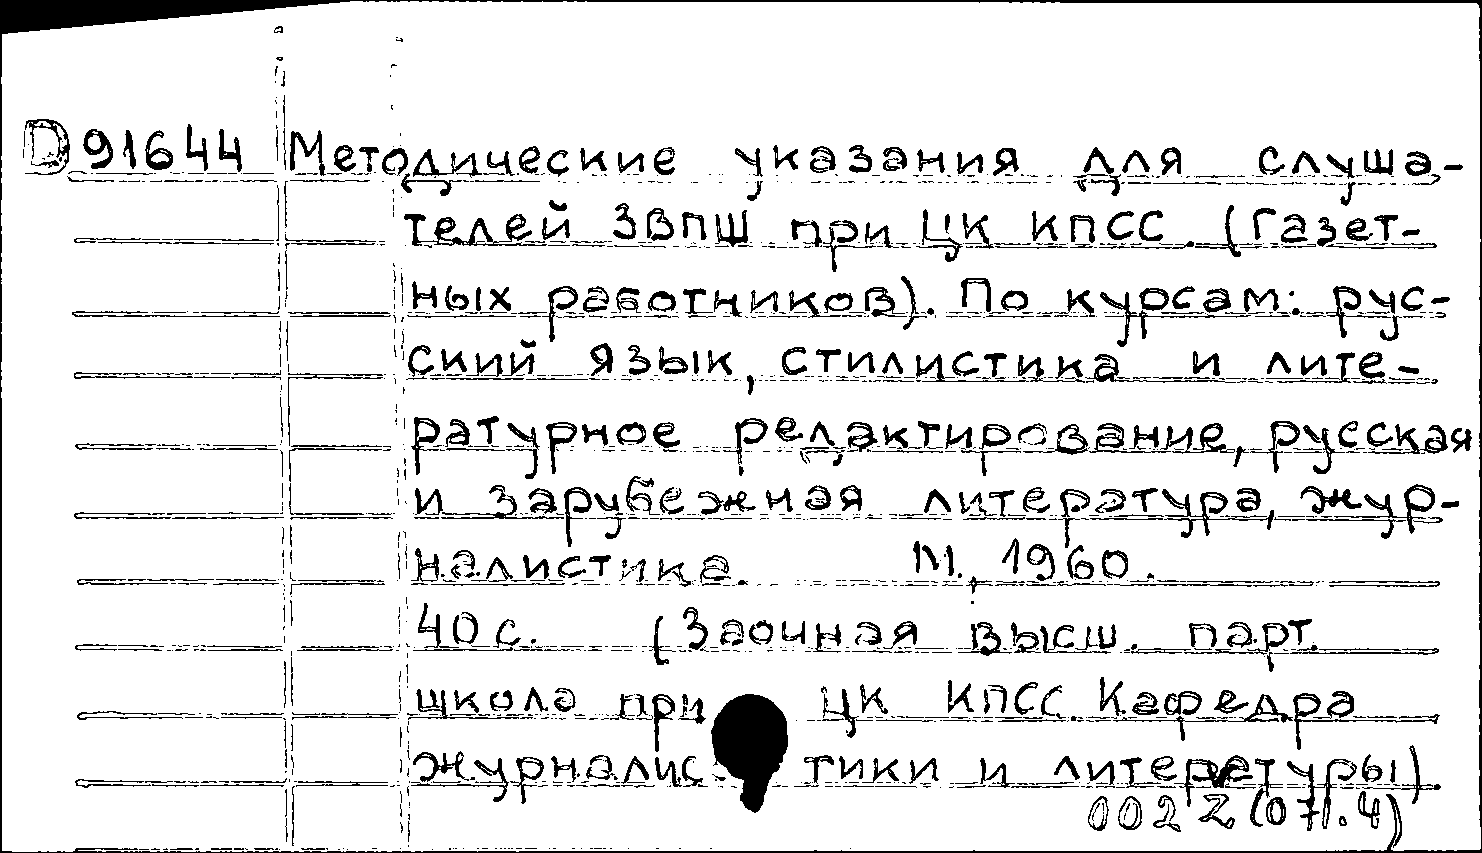 D91644 Методические указания для слуша-
телей ЗВПШ при ЦК КПСС. (Газет-
ных работников). По курсам: рус-
ский язык, стилистика и лите-
ратурное редактирование, русская
и зарубежная литература, жур-
налистика. М., 1960.
40 с. (Заочная высш. парт.
школа при ЦК КПСС. Кафедра
журналистики и литературы)
002 Z (071.4)